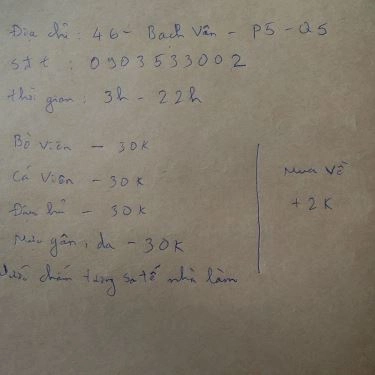 Địa chỉ: 46 - Bạch Vân - P5 - Q5
sđt: 0903533002
thời gian: 3h - 22h
Bò viên - 30K
Cá viên - 30K
Đậu hủ - 30K
gân, da - 30K
chấm tương sa tế nhà làm
Mua về
+ 2K